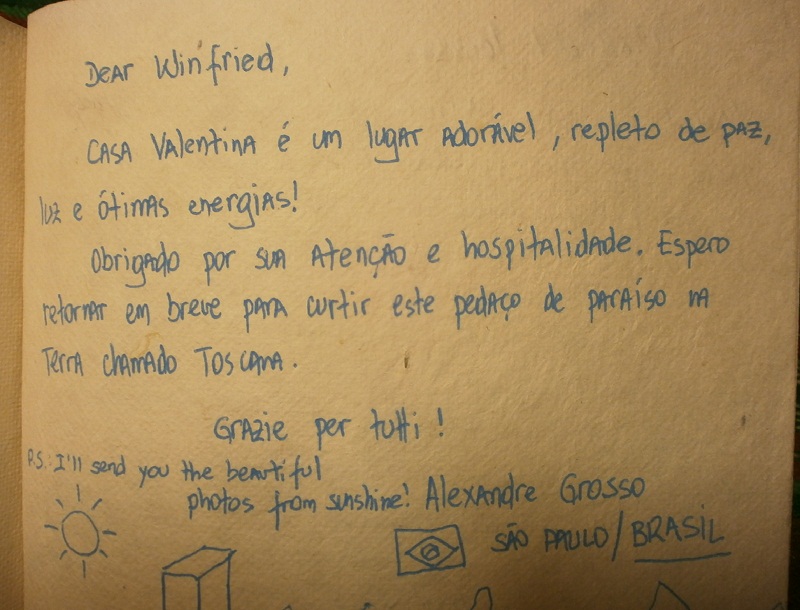 Dear Winfried,
Casa Valentina é um lugar adorável, repleto de paz,
luz e ótimas energias!
Obrigado por sua atenção e hospitalidade. Espero
retornar em breve para curtir este pedaço de paraíso na
Terra chamado Toscana.
Grazie per tutti!
P.S.: I'll send you the beautiful
photos from sunshine! Alexandre Grosso
São Paulo/BRASIL